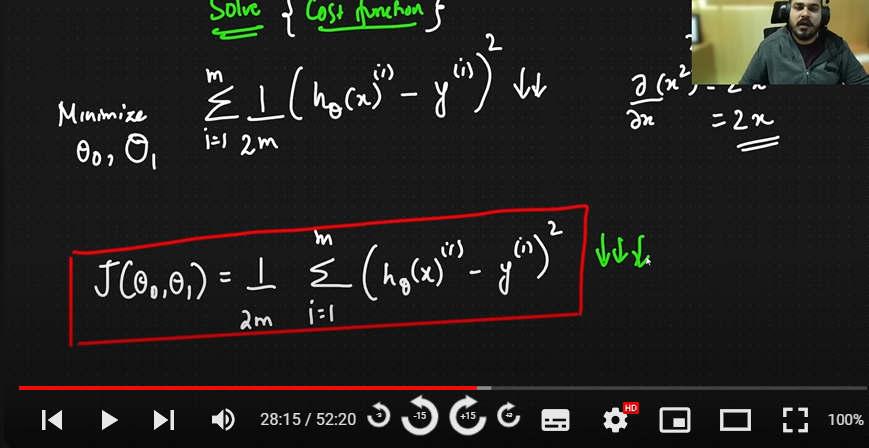 Solve { Cost function }
Minimize θ₀, θ₁
∑ᵢ₌₁ᵐ 1/2m (hθ(x)⁽ⁱ⁾ − y⁽ⁱ⁾)² ↓↓
∂/∂x (x²) = 2x
= 2x
J(θ₀, θ₁) = 1/2m ∑ᵢ₌₁ᵐ (hθ(x)⁽ⁱ⁾ − y⁽ⁱ⁾)² ↓↓↓
28:15 / 52:20
-15
+15
HD
100%